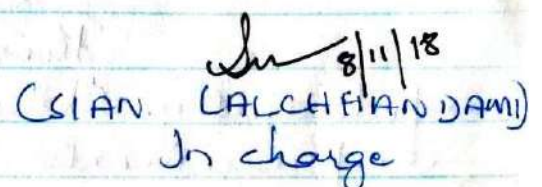 8/11/18
(SIAN LALCHHANDAMI)
In charge